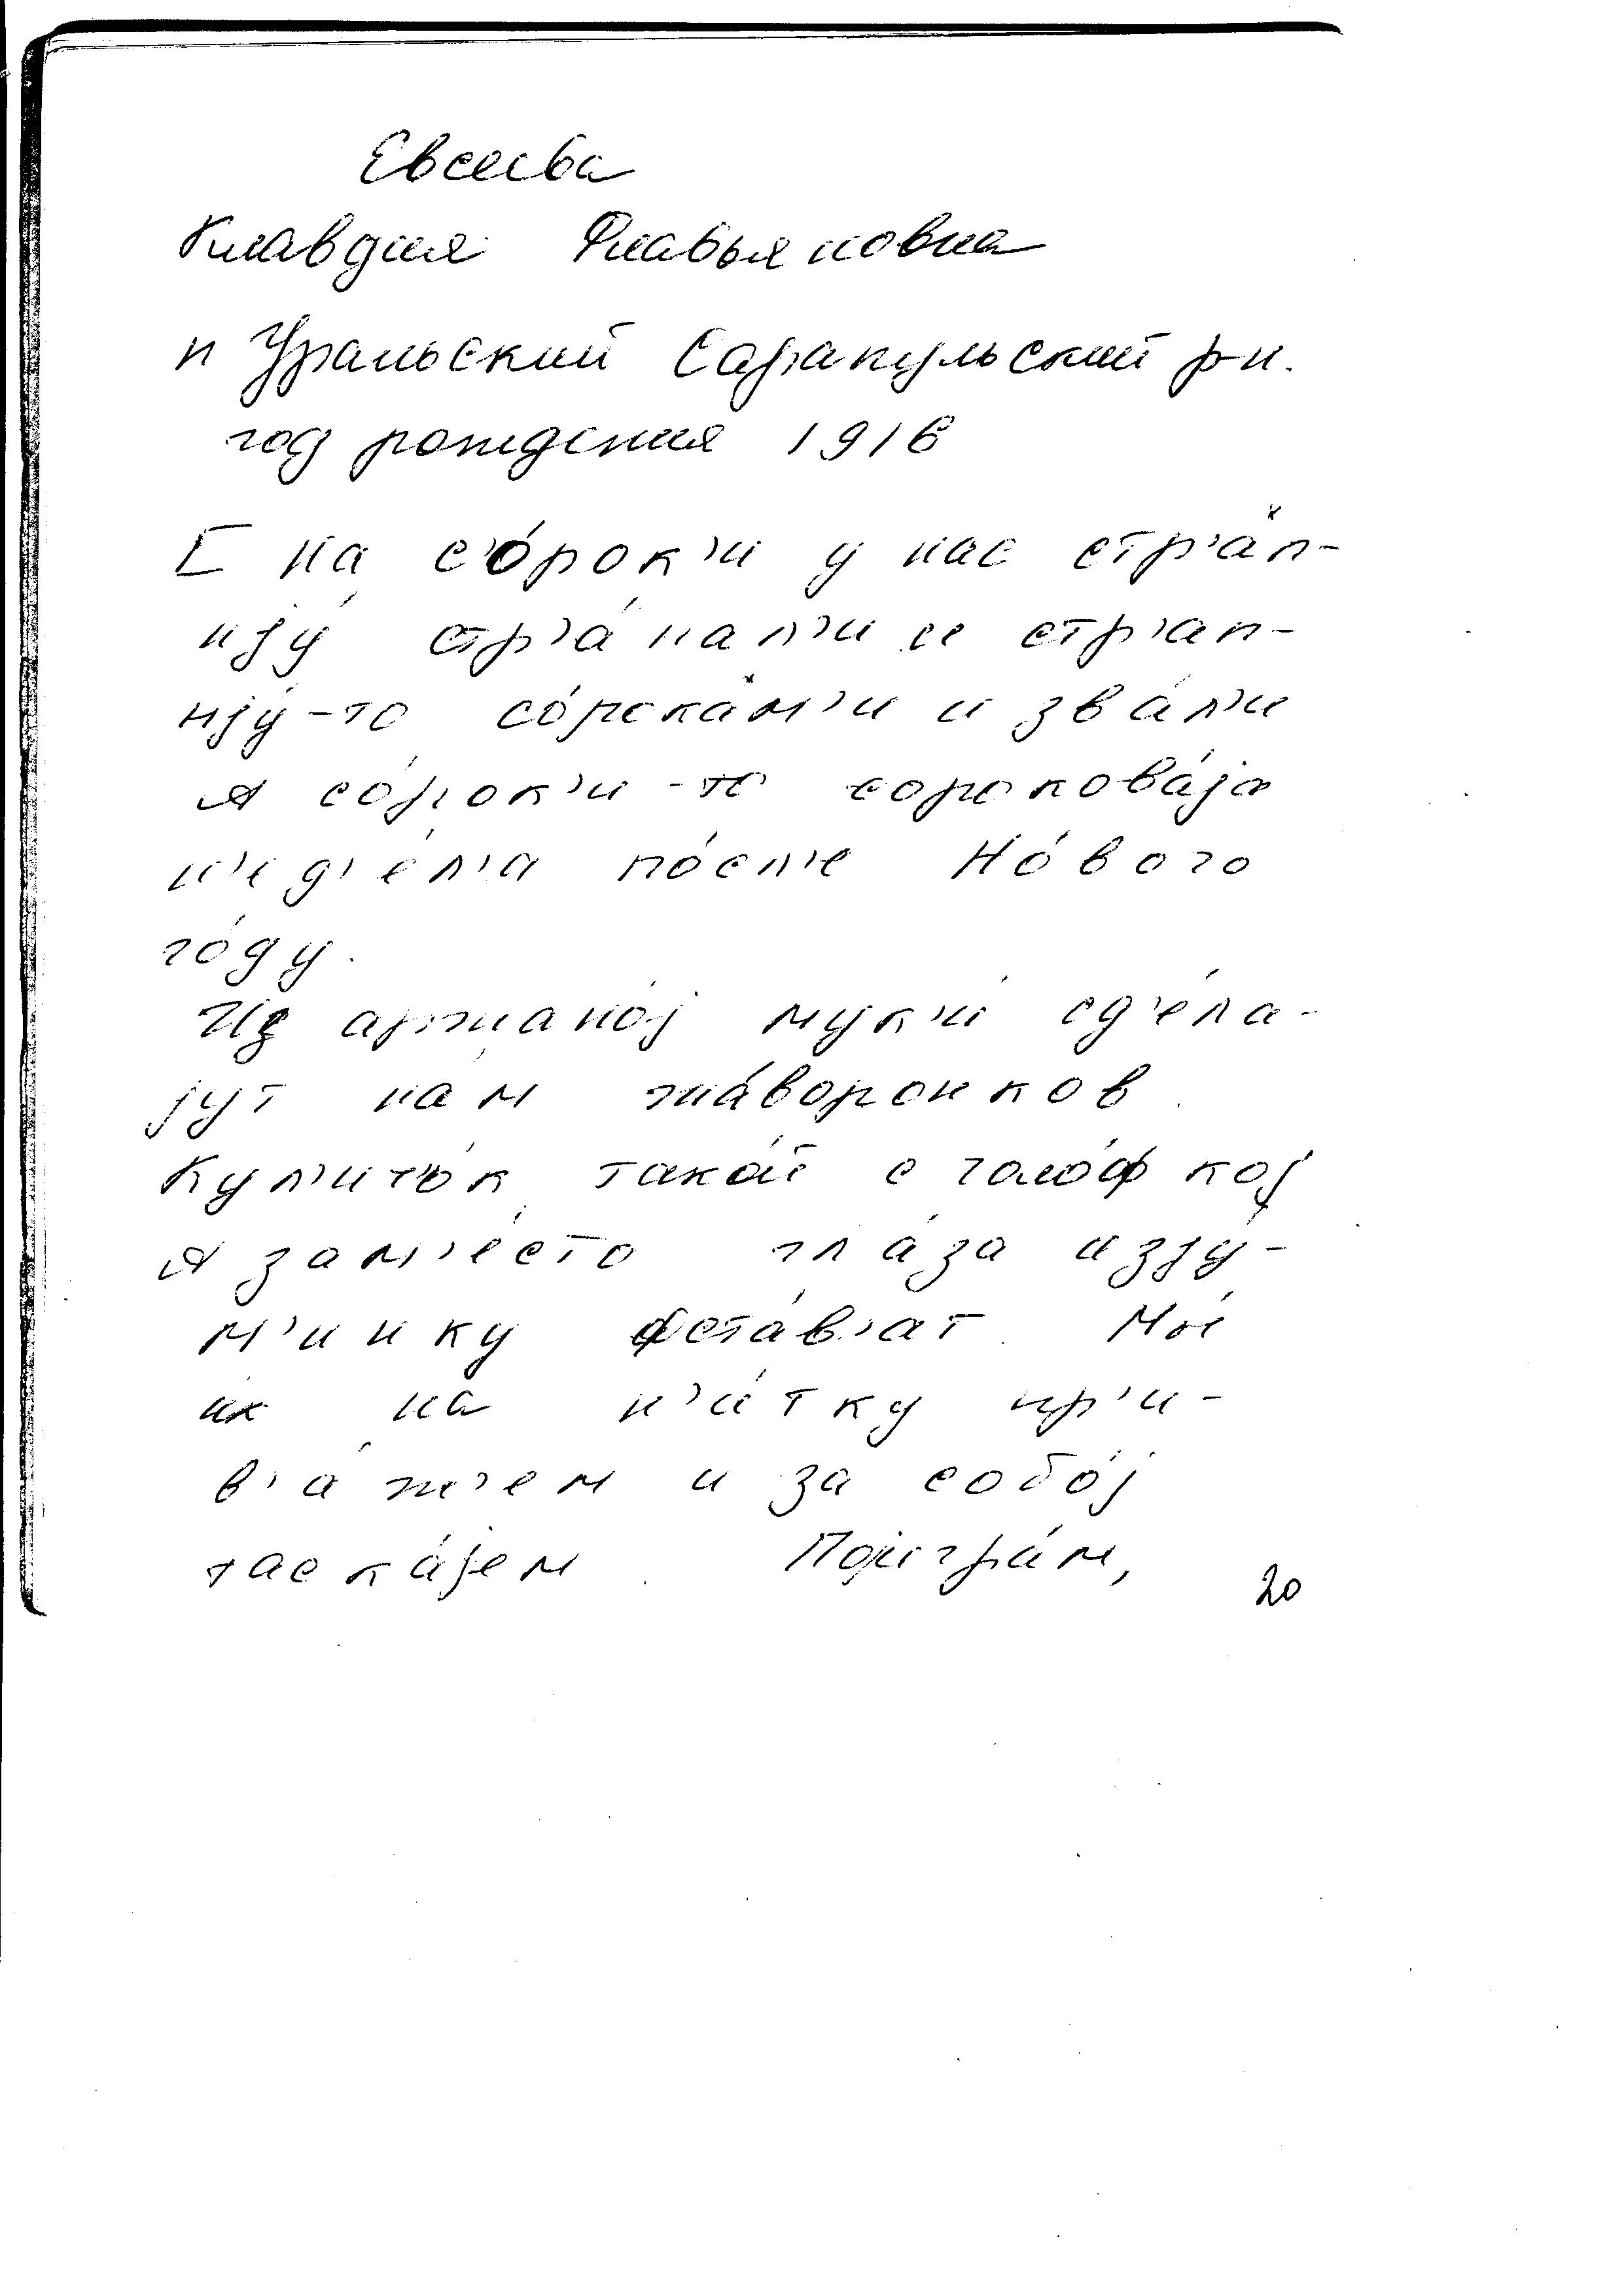 Евсеева
Клавдия Флавьяновна
п Уральский Сарапульский р-н.
год рождения 1916
[ На со́рок'и у нас стр'а́п-
н'у́ стр'а́пал'и и стр'ап-
н'у́-то со́рокам'и и зва́л'и
А со́рок'и-то сорокова́jа
н'ед'е́л'а по́сл'е Но́вого
го́ду.
Из аржано́j мук'и́ сд'е́ла-
jут нам жа́воронков.
Кул'ито́к тако́й с голо́фкоj
А зам'е́сто гла́за изjу́-
м'инку фста́в'ат. Мы
их на н'и́тку пр'и-
в'а́ж'ем и за собо́j
таска́jем. Поjигра́м,
20